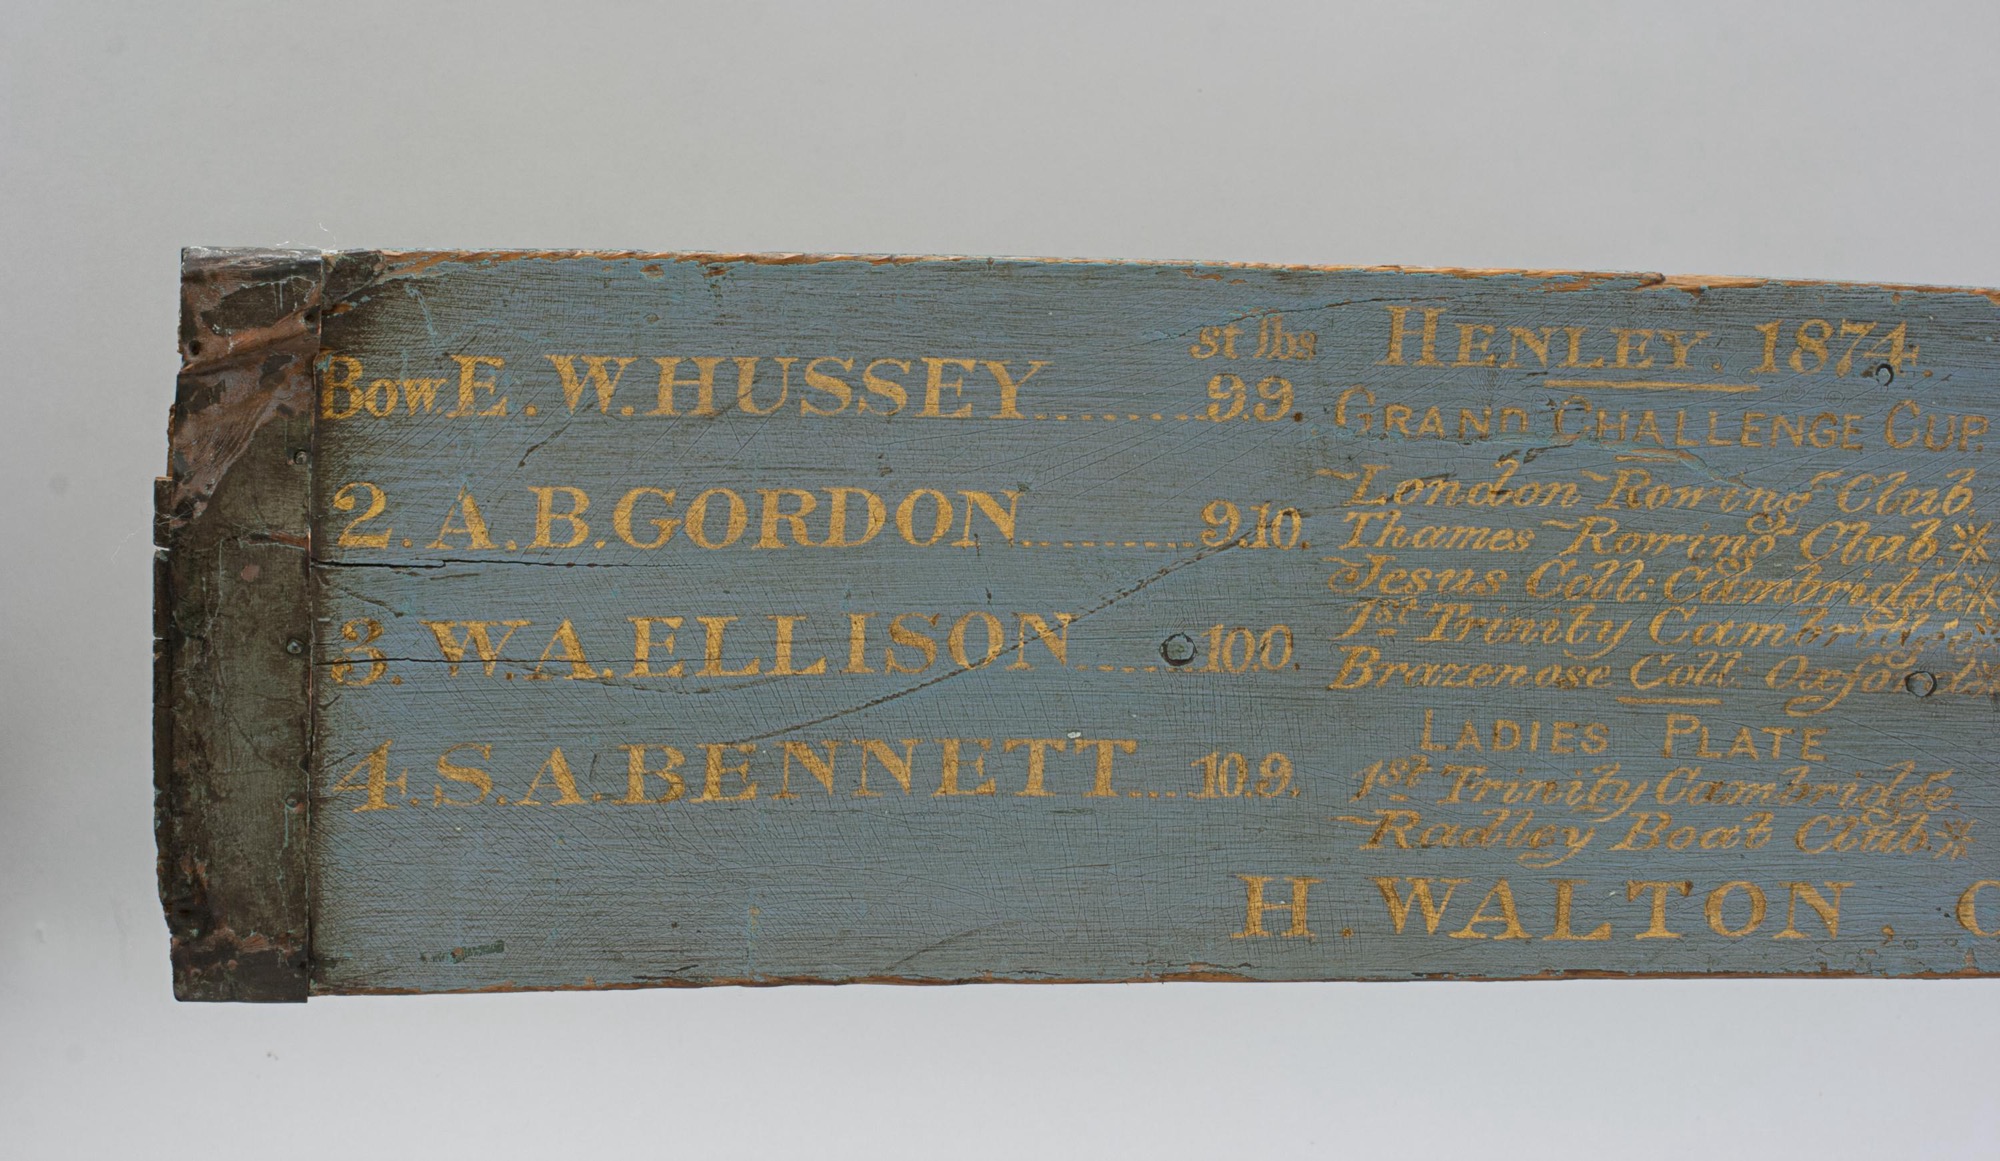 st lbs
Bow E. W. HUSSEY............9.9.
2. A. B. GORDON............9.10.
3. W. A. ELLISON......10.0.
4. S. A. BENNETT....10.9.
HENLEY. 1874.
GRAND CHALLENGE CUP.
London Rowing Club.
Thames Rowing Club.*
Jesus Coll: Cambridge*
1st Trinity Cambridge
Brazenose Coll Oxford*
LADIES PLATE
1st Trinity Cambridge
Radley Boat Club*
H. WALTON, C